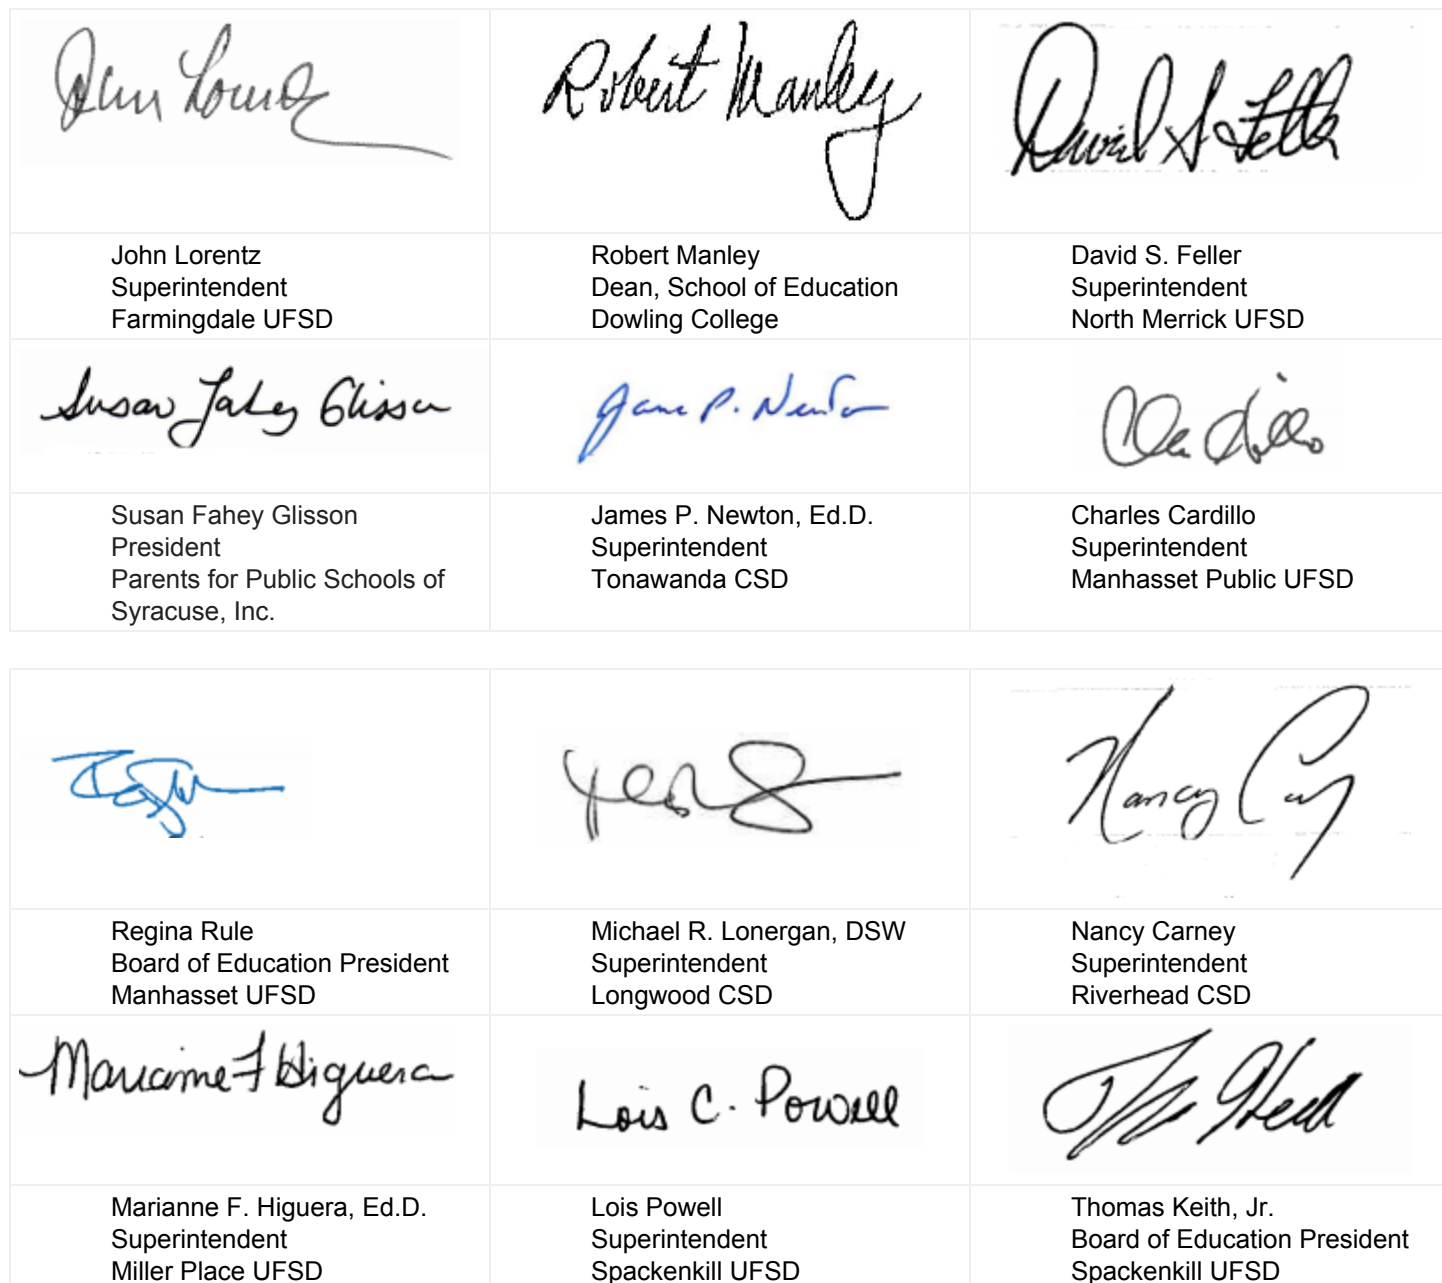 Robert Manley
David S Feller
John Lorentz
Superintendent
Farmingdale UFSD
Robert Manley
Dean, School of Education
Dowling College
David S. Feller
Superintendent
North Merrick UFSD
Susan Fahey Glisson
James P. Newton
Susan Fahey Glisson
President
Parents for Public Schools of
Syracuse, Inc.
James P. Newton, Ed.D.
Superintendent
Tonawanda CSD
Charles Cardillo
Superintendent
Manhasset Public UFSD
Nancy
Regina Rule
Board of Education President
Manhasset UFSD
Michael R. Lonergan, DSW
Superintendent
Longwood CSD
Nancy Carney
Superintendent
Riverhead CSD
Marianne F Higuera
Lois C. Powell
Marianne F. Higuera, Ed.D.
Superintendent
Miller Place UFSD
Lois Powell
Superintendent
Spackenkill UFSD
Thomas Keith, Jr.
Board of Education President
Spackenkill UFSD